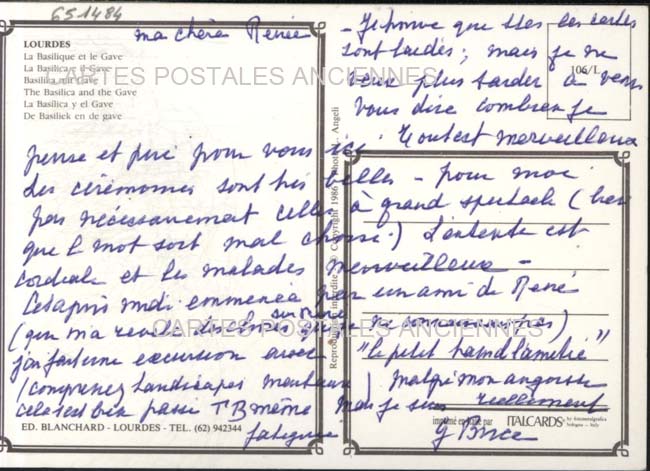 651484
LOURDES
La Basilique et le Gave
La Basilica y il Gave
Basilika mit Gave
The Basilica and the Gave
La Basílica y el Gave
De Basiliek en de gave
CARTES POSTALES ANCIENNES
106/L
ma chère Renée
- Je trouve que les cartes
sont tardes ; mais je ne
veux plus tarder à vous
vous dire combien je
pense et prié pour vous ici.
Tout est merveilleux
Les cérémonies sont très belles - pour moi
pas nécessairement celles à grand spectacle (bien
que le mot soit mal choisi.) L'entente est
cordiale et les malades merveilleux -
Cet après midi emmenée par un ami de René
(que ma
CARTES POSTALES ANCIENNES
j'ai fait une excursion avec "le petit train
(comprenez handicapés moteurs) malgré mon angoisse
cela s'est bien passé TB même mais je suis réellement
fatiguée
G
Reproduction interdite © Copyright 1986 Photo Angeli
ED. BLANCHARD - LOURDES - TEL. (62) 942344
imprimé en Italie par ITALCARDS by fotometalgrafica bologna - italy